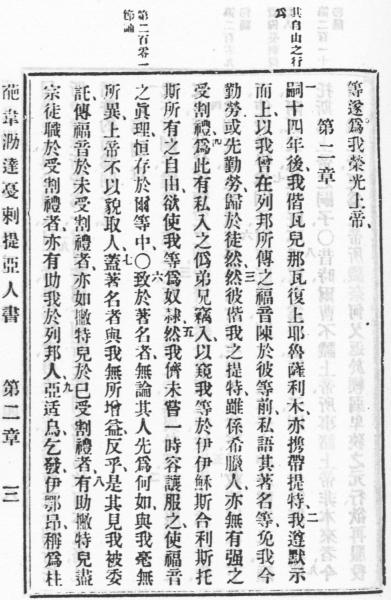 其自由之行爲
第二百零一節論
等遂爲我榮光上帝、
第二章
一嗣十四年後我偕瓦兒那瓦復上耶魯薩利木亦携帶提特、二我遵默示
而上以我曾在列邦所傳之福音陳於彼等前私語其著名等免我今
勤勞或先勤勞歸於徒然、三然彼偕我之提特、雖係希臘人、亦無有强之
受割禮、四爲此有私入之僞弟兄竊入以窺我等於伊伊穌斯合利斯托
斯所有之自由欲使我等爲奴隸、五然我儕未嘗一時容讓服之、使福音
之眞理恒存於爾等中、○六致於著名者無論其人先爲何如與我毫無
所異、上帝不以貌取人、蓋著名者與我無所增益、七反乎是其見我被委
託傳福音於未受割禮者、亦如撇特兒於已受割禮者、八有助撇特兒盡
宗徒職於受割禮者、亦有助我於列邦人、九亞适烏乞發伊鄂昂、稱爲柱
葩韋泐達戛剌提亞人書 第二章 三